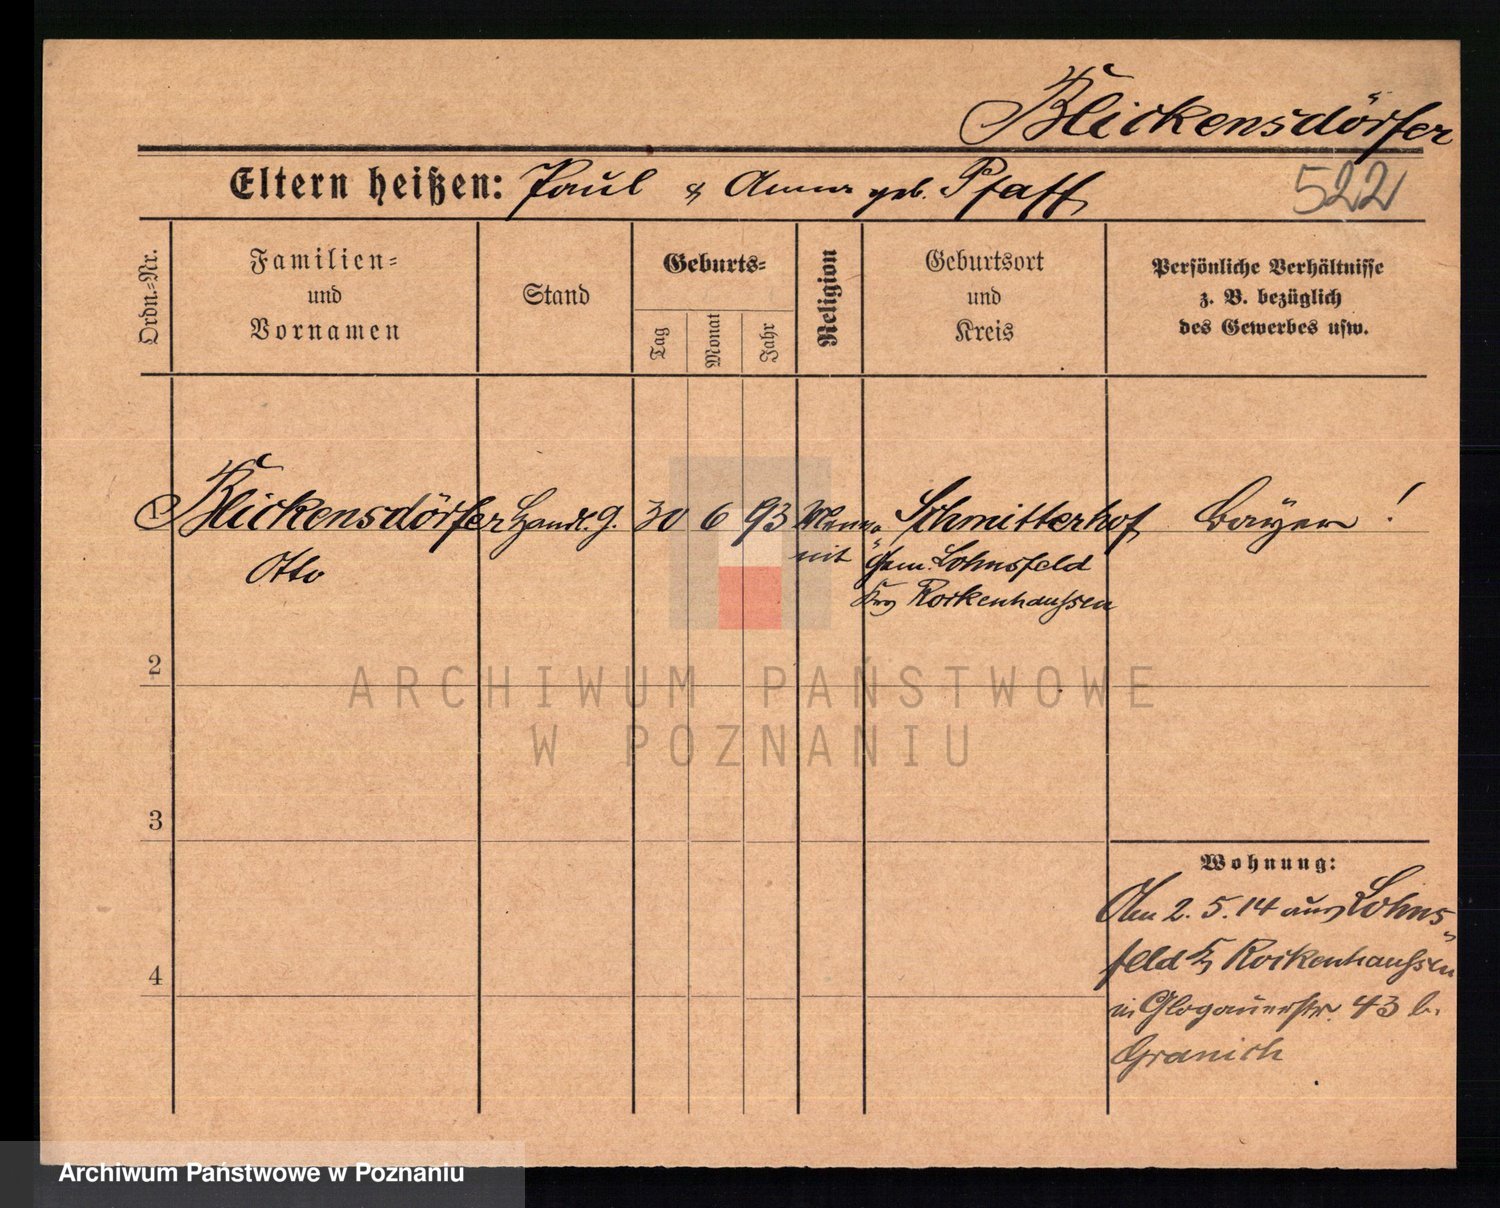 Blickensdörfer
Eltern heißen: Paul & Anna geb. Pfaff
522
Ordn.-Nr.
Familien-
und
Vornamen
Stand
Geburts-
Tag
Monat
Jahr
Religion
Geburtsort
und
Kreis
Persönliche Verhältnisse
z. B. bezüglich
des Gewerbes usw.
1 Blickensdörfer Handl. G. 30 6 93 Menno- Schmitterhof Bayer !
Otto nit Gem. Lohnsfeld
Krs Rockenhaussen
2
3
4
Wohnung:
Am 2. 5. 14 aus Lohns-
feld Ks Rockenhaussen
in Glogauerstr. 43 b.
Granich
ARCHIWUM PAŃSTWOWE
W POZNANIU
Archiwum Państwowe w Poznaniu